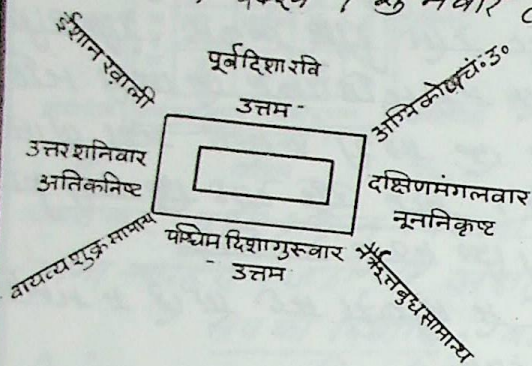 ईशान खाली
पूर्व दिशा रवि
उत्तम -
अग्नि कोण चं॰ उ॰
उत्तर शनिवार
अतिकनिष्ट
दक्षिण मंगलवार
नून निकृष्ट
वायव्य शुक्र सामान्य
पश्चिम दिशा गुरूवार
- उत्तम
नैऋत बुध सामान्य